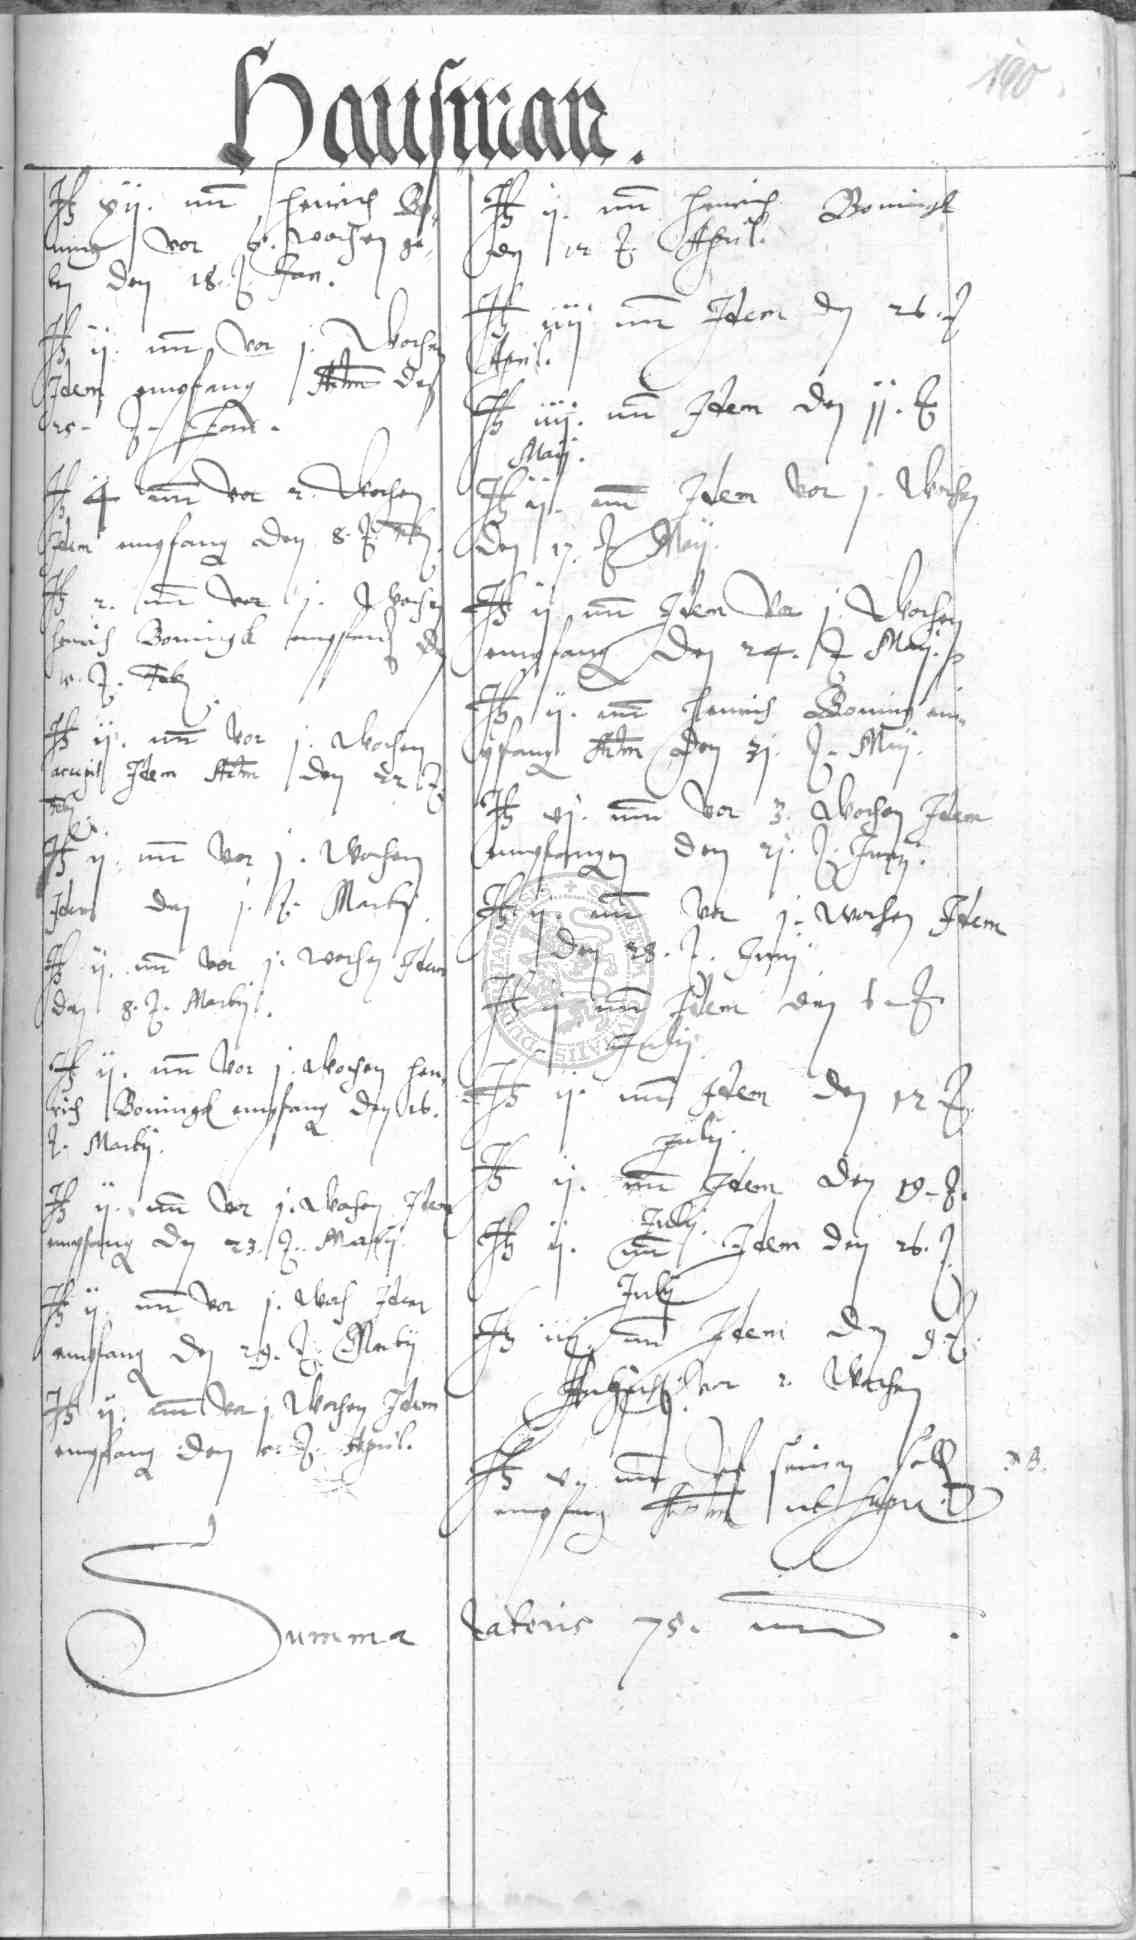 190
Hausman.
It xij. mn Henrich Bo-
ning vor 6. wochen ge-
ben den 18. J. Jan.
It ij. mn vor j. Wochen
Idem empfang Actm den
25. J. Jan.
It 4 mn vor 2. Wochen
Idem empfang den 8. J. Feb.
It 2. mn vor j. Wochen
Henrich Boningk empfang den
J. Feb.
It ij. mn vor j. Wochen
accepit Idem Actm den 22 J.
Feb.
It ij. mn vor j. Wochen
Idem den j. J. Martij.
It ij. mn vor j. wochen Idem
den 8. J. Martij.
It ij. mn vor j. Wochen Hen-
rich Boningk empfang den 16.
J. Martij.
It ij. mn vor j. Wochen Idem
empfang den 23. J. Martij.
It ij. mn vor j. Woch Idem
empfang den 29. J. Martij
It ij. mn vor j. Wochen Idem
empfang den J. April.
It ij. mn Henrich Boningk
den 12 J. April.
It iiij mn Idem den 26. J
April.
It iiij. mn Idem den jj. J
Maij.
It ij. mn Idem vor j. Wochen
den 17. J Maij.
It ij mn Idem vor j. Wochen
empfang den 24. J Maij.
It ij. mn Henrich Boning em-
pfang Actm den 3j. J. Maij.
It vj. mn vor 3. Wochen Idem
empfangen den 2j. J. Junij.
It ij. mn vor j. wochen Idem
den 28. J. Junij
It ij mn Idem den J.
Julij.
It ij. mn Idem den 12 J.
Julij.
It ij. mn Idem den 19. J.
Julij.
It ij. mn Idem den 26. J.
Julij
It iiij mn Idem den 9. J.
Augusti vor 2. Wochen
It mn seinen
empfang
NB.
Summa Lateris 78. mn.